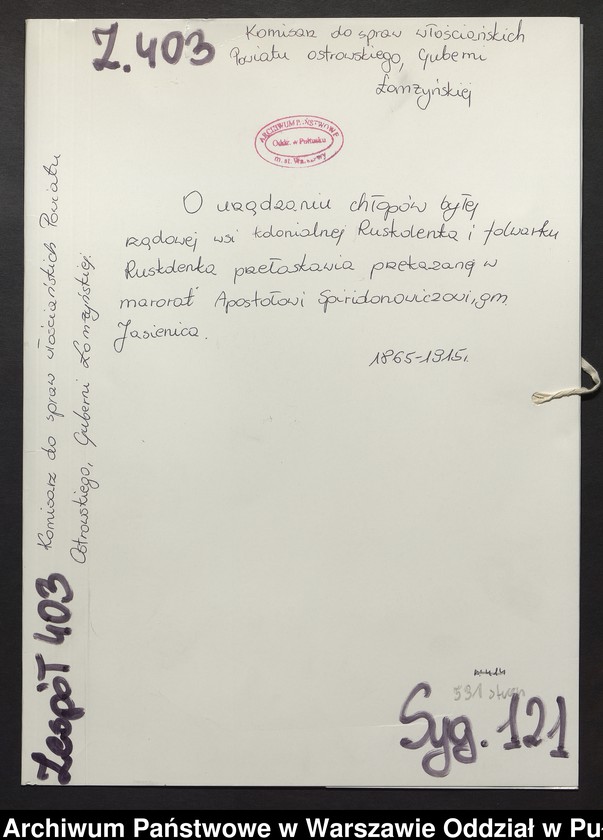 Z.403
Komisarz do spraw włościańskich
Powiatu ostrowskiego, Guberni
Łomżyńskiej
ARCHIWUM PAŃSTWOWE
Oddz. w Pułtusku
m. st. Warszawy
O urządzaniu chłopów byłej
rządowej wsi kolonialnej Ruskołenka i folwarku
Ruskołenka przetaskawia przekazaną w
marorat Apostołowi Spiridonowiczowi, gm.
Jasienica.
1865-1915r.
Komisarz do spraw włościańskich Powiatu
Ostrowskiego, Guberni Łomżyńskiej.
Zespół 403
531 stron
Syg. 121
Archiwum Państwowe w Warszawie Oddział w Pu